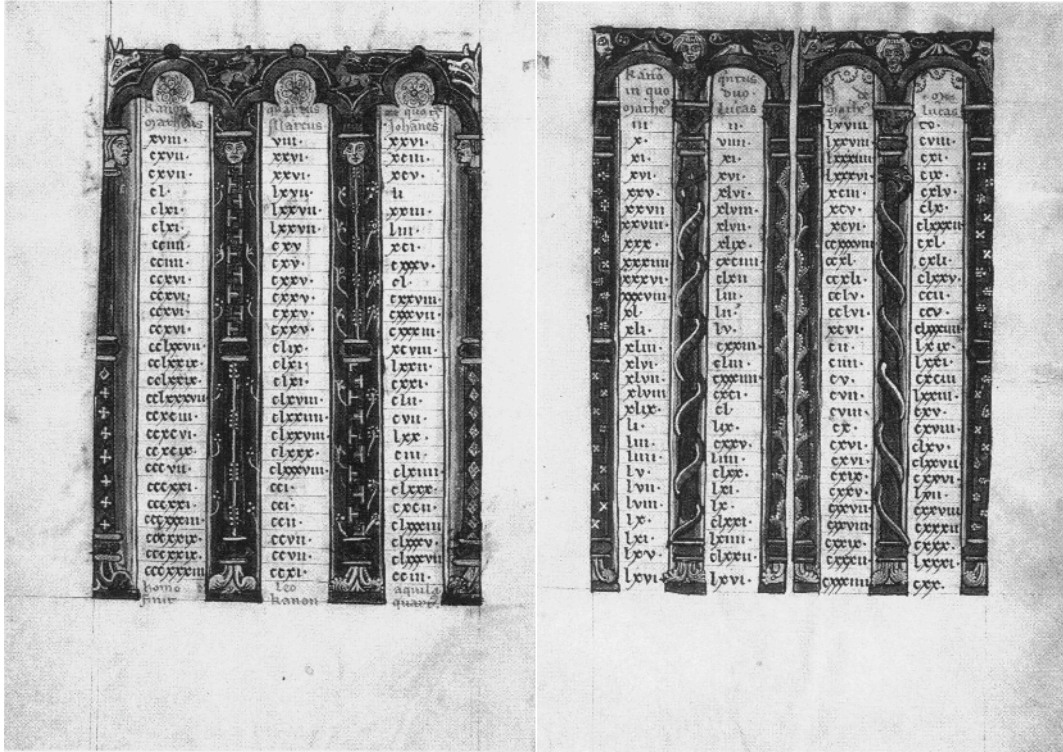 Kanon
Matheus
xviii·
cxvii·
cxvii·
cl·
clxi·
clxi·
cciiii·
cciiii·
ccxvi·
ccxvi·
ccxvi·
ccxvi·
cclxxvii·
cclxxix·
cclxxix·
cclxxxvii·
ccxciii·
ccxcvi·
ccxcix·
cccvii·
cccxxi·
cccxxiii·
cccxxix·
cccxxix·
cccxxxiii·
homo
finit
quartus
Marcus
viii·
xxvi·
xxvi·
lxvii·
lxxvii·
lxxvii·
cxv·
cxv·
cxxv·
cxxv·
cxxv·
cxxv·
clix·
clxi·
clxi·
clxviii·
clxxiiii·
clxxviii·
clxxx·
clxxxviii·
cci·
ccii·
ccvii·
ccvii·
ccxi·
leo
kanon
in quo
Johanes
xxvi·
xciii·
xcv·
li
xxiii·
liii·
xci·
cxxxv·
cl·
cxxviii·
cxxxvii·
cxxxiii·
xcviii·
lxxii·
cxxi·
clii·
cvii·
lxx·
ciii·
clxiiii·
clxxx·
cxcii·
clxxxiii·
clxxxv·
clxxxvii·
cciii·
aquila
quart
Kano
in quo
Mathe
iii·
x·
xi·
xvi·
xxv·
xxvii·
xxviii·
xxx·
xxxiiii·
xxxvi·
xxxviii·
xl·
xli·
xliii·
xlvi·
xlvii·
xlviii·
xlix·
li·
liii·
liiii·
lv·
lvii·
lviii·
lx·
lxi·
lxv·
lxvi·
qintus
duo·
Lucas
ii·
viii·
xi·
xvi·
xlvi·
xlviii·
xlvii·
xlix·
cxciiii·
clxii·
liii·
lii·
lv·
cxxiii·
cliii·
cxxxiiii·
cxci·
cl·
lix·
cxxv·
liiii·
clxx·
lxi·
clxxi·
lxiiii·
clxxii·
lxvi·
Mathe
lxviii·
lxxviii·
lxxxiiii·
lxxxvi·
xciii·
xcv·
xcvi·
ccxxxviii·
ccxl·
ccxli·
cclv·
cclvi·
xcvi·
cii·
ciiii·
cv·
cvii·
cviii·
cx·
cxvi·
cxvi·
cxix·
cxxv·
cxxvii·
cxxviii·
cxxix·
cxxxii·
cxxxiiii·
Lucas
cv·
cviii·
cxi·
cix·
cxlv·
clx·
clxxxii·
cxl·
cxli·
clxxv·
ccii·
ccv·
clxxxiiii·
lxix·
lxxi·
cxciii·
lxxxiii·
cxv·
cxviii·
clxv·
clxxvii·
lxii·
cxxviii·
cxxxii·
cxxx·
lxxxi·
cxx·